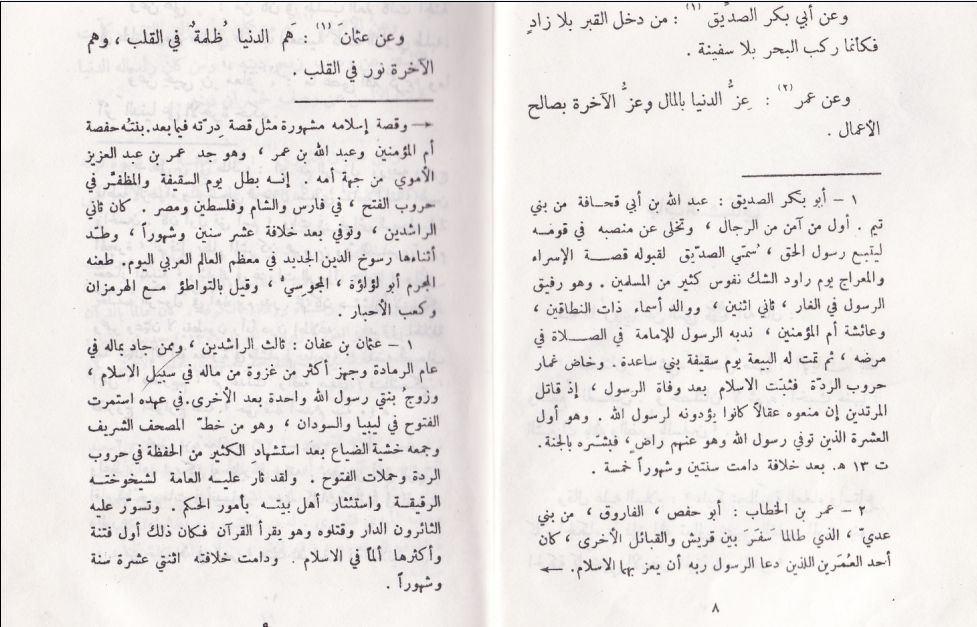 وعن أبي بكر الصدّيق (١) : من دخل القبر بلا زادٍ
فكأنما ركب البحر بلا سفينة .
وعن عمر (٢) : عِزُّ الدنيا بالمال وعِزُّ الآخرة بصالح
الأعمال .
١ – أبو بكر الصديق : عبد الله بن أبي قحافة من بني
تيم . أول من آمن من الرجال ، وتخلى عن منصبه في قومه
ليتبع رسول الحق ، سُمّي الصدّيق لقبوله قصة الإسراء
والمعراج يوم راود الشك نفوس كثير من المسلمين . وهو رفيق
الرسول في الغار ، ثاني اثنين ، ووالد أسماء ذات النطاقين ،
وعائشة أم المؤمنين ، ندبه الرسول للإمامة في الصلاة في
مرضه ، ثم تمت له البيعة يوم سقيفة بني ساعدة . وخاض غمار
حروب الردّة فثبّت الاسلام بعد وفاة الرسول ، إذ قاتل
المرتدين إن منعوه عقالاً كانوا يؤدونه لرسول الله . وهو أول
العشرة الذين توفي رسول الله وهو عنهم راضٍ ، فبشّره بالجنة .
ت ١٣ هـ . بعد خلافة دامت سنتين وشهوراً خمسة .
٢ – عمر بن الخطاب : أبو حفص ، الفاروق ، من بني
عديّ ، الذي طالما سَفَرَ بين قريش والقبائل الأخرى ، كان
أحد العُمَرين اللذين دعا الرسول ربه أن يعز بهما الاسلام . ←
٨
وعن عثمان (١) : هَم الدنيا ظُلمةٌ في القلب ، وهم
الآخرة نور في القلب .
→ وقصة إسلامه مشهورة مثل قصة دِرّته فيما بعد . بنتُه حفصة
أم المؤمنين وعبد الله بن عمر ، وهو جد عمر بن عبد العزيز
الأموي من جهة أمه . إنه بطل يوم السقيفة والمظفّر في
حروب الفتح ، في فارس والشام وفلسطين ومصر . كان ثاني
الراشدين ، وتوفي بعد خلافة عشر سنين وشهوراً ، وطّد
أثناءها رسوخ الدين الجديد في معظم العالم العربي اليوم . طعنه
المجرم أبو لؤلؤة ، المجوسيّ ، وقيل بالتواطؤ مع الهرمزان
وكعب الأحبار .
١ – عثمان بن عفان : ثالث الراشدين ، وممن جاد بماله في
عام الرمادة وجهز أكثر من غزوة من ماله في سبيل الاسلام ،
وزوج بنتي رسول الله واحدة بعد الأخرى . في عهده استمرت
الفتوح في ليبيا والسودان ، وهو من خطّ المصحف الشريف
وجمعه خشية الضياع بعد استشهاد الكثير من الحفظة في حروب
الردة وحملات الفتوح . ولقد ثار عليه العامة لشيخوخته
الرقيقة واستئثار أهل بيته بأمور الحكم . وتسوّر عليه
الثائرون الدار وقتلوه وهو يقرأ القرآن فكان ذلك أول فتنة
وأكثرها ألماً في الاسلام . ودامت خلافته اثنتي عشرة سنة
وشهوراً .